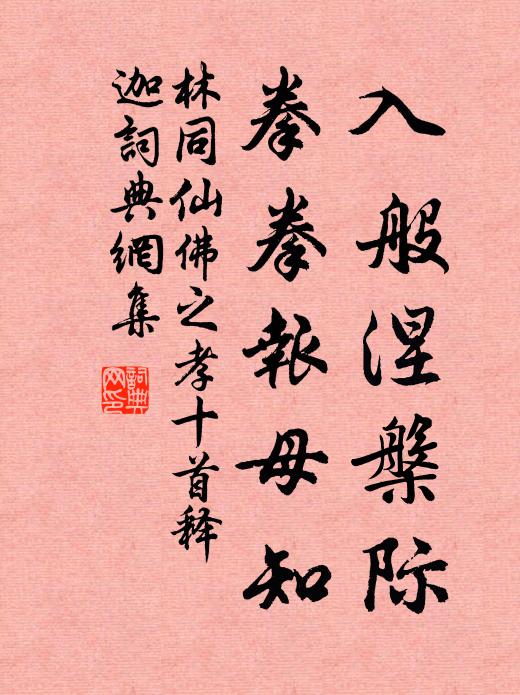 入般涅槃际
拳拳報母知
林同仙佛之孝十首释
迦詞典網集
詞典网印